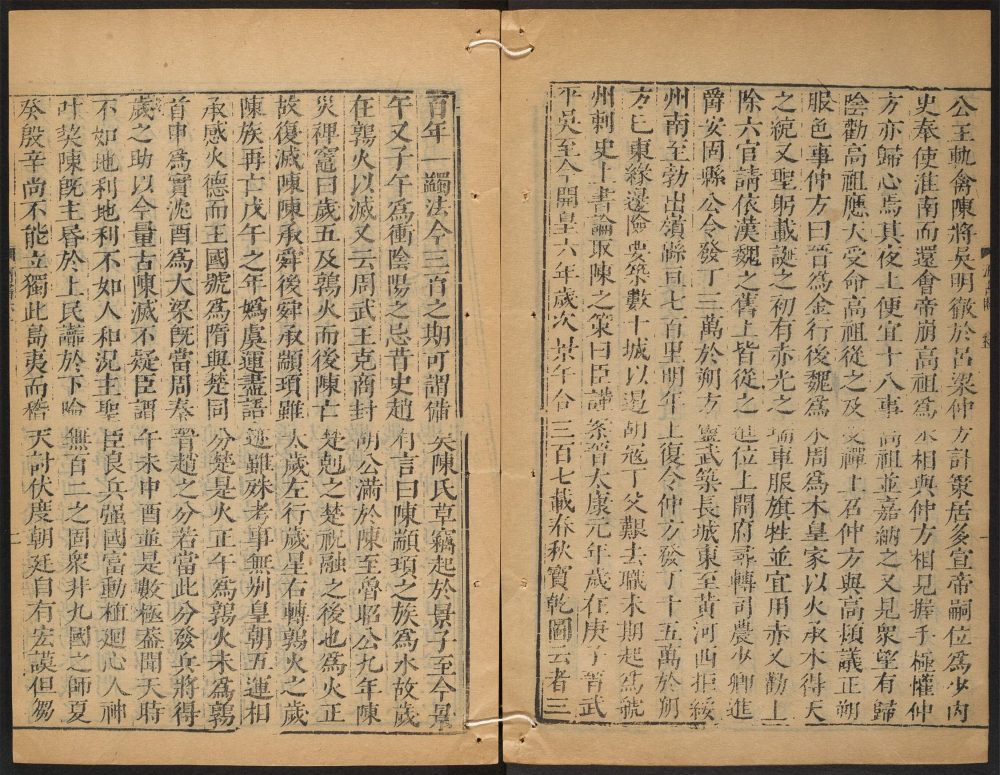 公王軌禽陳將吳明徹於呂梁仲方計策居多宣帝嗣位為少內
史奉使淮南而還會帝崩高祖為丞相與仲方相見握手極懽仲
方亦歸心焉其夜上便宜十八事高祖並嘉納之又見衆望有歸
陰勸高祖應天受命高祖從之及受禪上召仲方與高熲議正朔
服色事仲方曰晉為金行後魏為水周為木皇家以火承木得天
之統又聖躬載誕之初有赤光之瑞車服旗牲並宜用赤又勸上
除六官請依漢魏之舊上皆從之進位上開府尋轉司農少卿進
爵安固縣公令發丁三萬於朔方靈武築長城東至黃河西拒綏
州南至勃出嶺緜亘七百里明年上復令仲方發丁十五萬於朔
方已東緣邊險要築數十城以遏胡寇丁父艱去職未期起為虢
州刺史上書論取陳之策曰臣謹案晉太康元年歲在庚子晉武
平吳至今開皇六年歲次景午合三百七載春秋寶乾圖云者三
百年一蠲法今三百之期可謂備矣陳氏草竊起於景子至今景
午又子午為衝陰陽之忌昔史趙有言曰陳顓頊之族為水故歲
在鶉火以滅又云周武王克商封胡公滿於陳至魯昭公九年陳
災裨竈曰歲五及鶉火而後陳亡楚剋之楚祝融之後也為火正
故復滅陳陳承舜後舜承顓頊雖太歲左行歲星右轉鶉火之歲
陳族再亡戊午之年媯虞運盡語迹雖殊考事無別皇朝五運相
承感火德而王國號為隋與楚同分楚是火正午為鶉火未為鶉
首申為實沈酉為大梁既當周秦晉趙之分若當此分發兵將得
歲之助以今量古陳滅不疑臣謂午未申酉並是數極蓋聞天時
不如地利地利不如人和況主聖臣良兵强國富動植迴心人神
叶契陳既主昏於上民讟於下險無百二之固衆非九國之師夏
癸殷辛尚不能立獨此島夷而稽天討伏度朝廷自有宏謨但芻